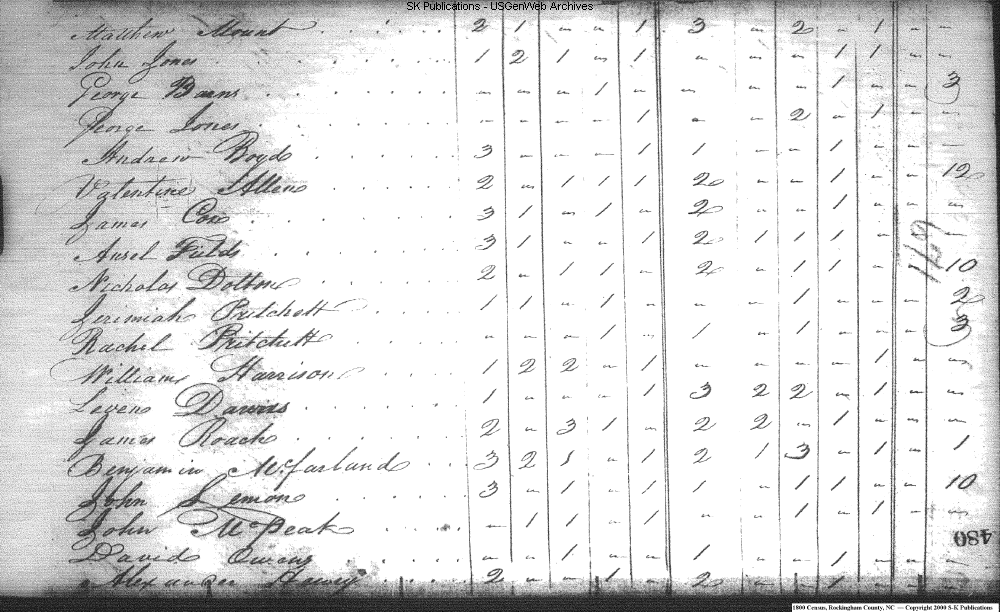 SK Publications - USGenWeb Archives
Matthew Mount 2 1 - - 1 3 - 2 - 1 - -
John Jones 1 2 1 - 1 - - - 1 1 - -
George Barns - - - 1 - - - - 1 - - 3
George Jones - - - - 1 - - 2 - 1 - -
Andrew Boyd 3 - - - 1 1 - - 1 - - 12
Valentine Allen 2 - 1 1 1 2 - - 1 - - -
James Cox 3 1 - 1 - 2 - - 1 - - -
Ansel Fields 3 1 - - 1 2 1 1 1 - - -
169
Nicholas Dolton 2 - 1 1 - 2 - 1 1 - - 10
Jerimiah Pritchett 1 1 - 1 - - - 1 - - - 2
Rachel Pritchett - - - 1 - 1 - 1 - - - 3
William Harrison 1 2 2 - 1 - - - - 1 - -
Leven Davis 1 - - - 1 3 2 2 - 1 - -
James Roach 2 - 3 1 - 2 2 - 1 - - -
Benjamin McFarland 3 2 1 - 1 2 1 3 - 1 - 1
John Lemon 3 - 1 - 1 1 - - 1 1 - 10
John McPeak - 1 1 - 1 - - 1 - 1 - -
480
David Owens - - 1 - - 1 - - 1 - - -
Alexander 2 - - 1 - 2 - - 1 - - -
1800 Census, Rockingham County, NC — Copyright 2000 S-K Publications